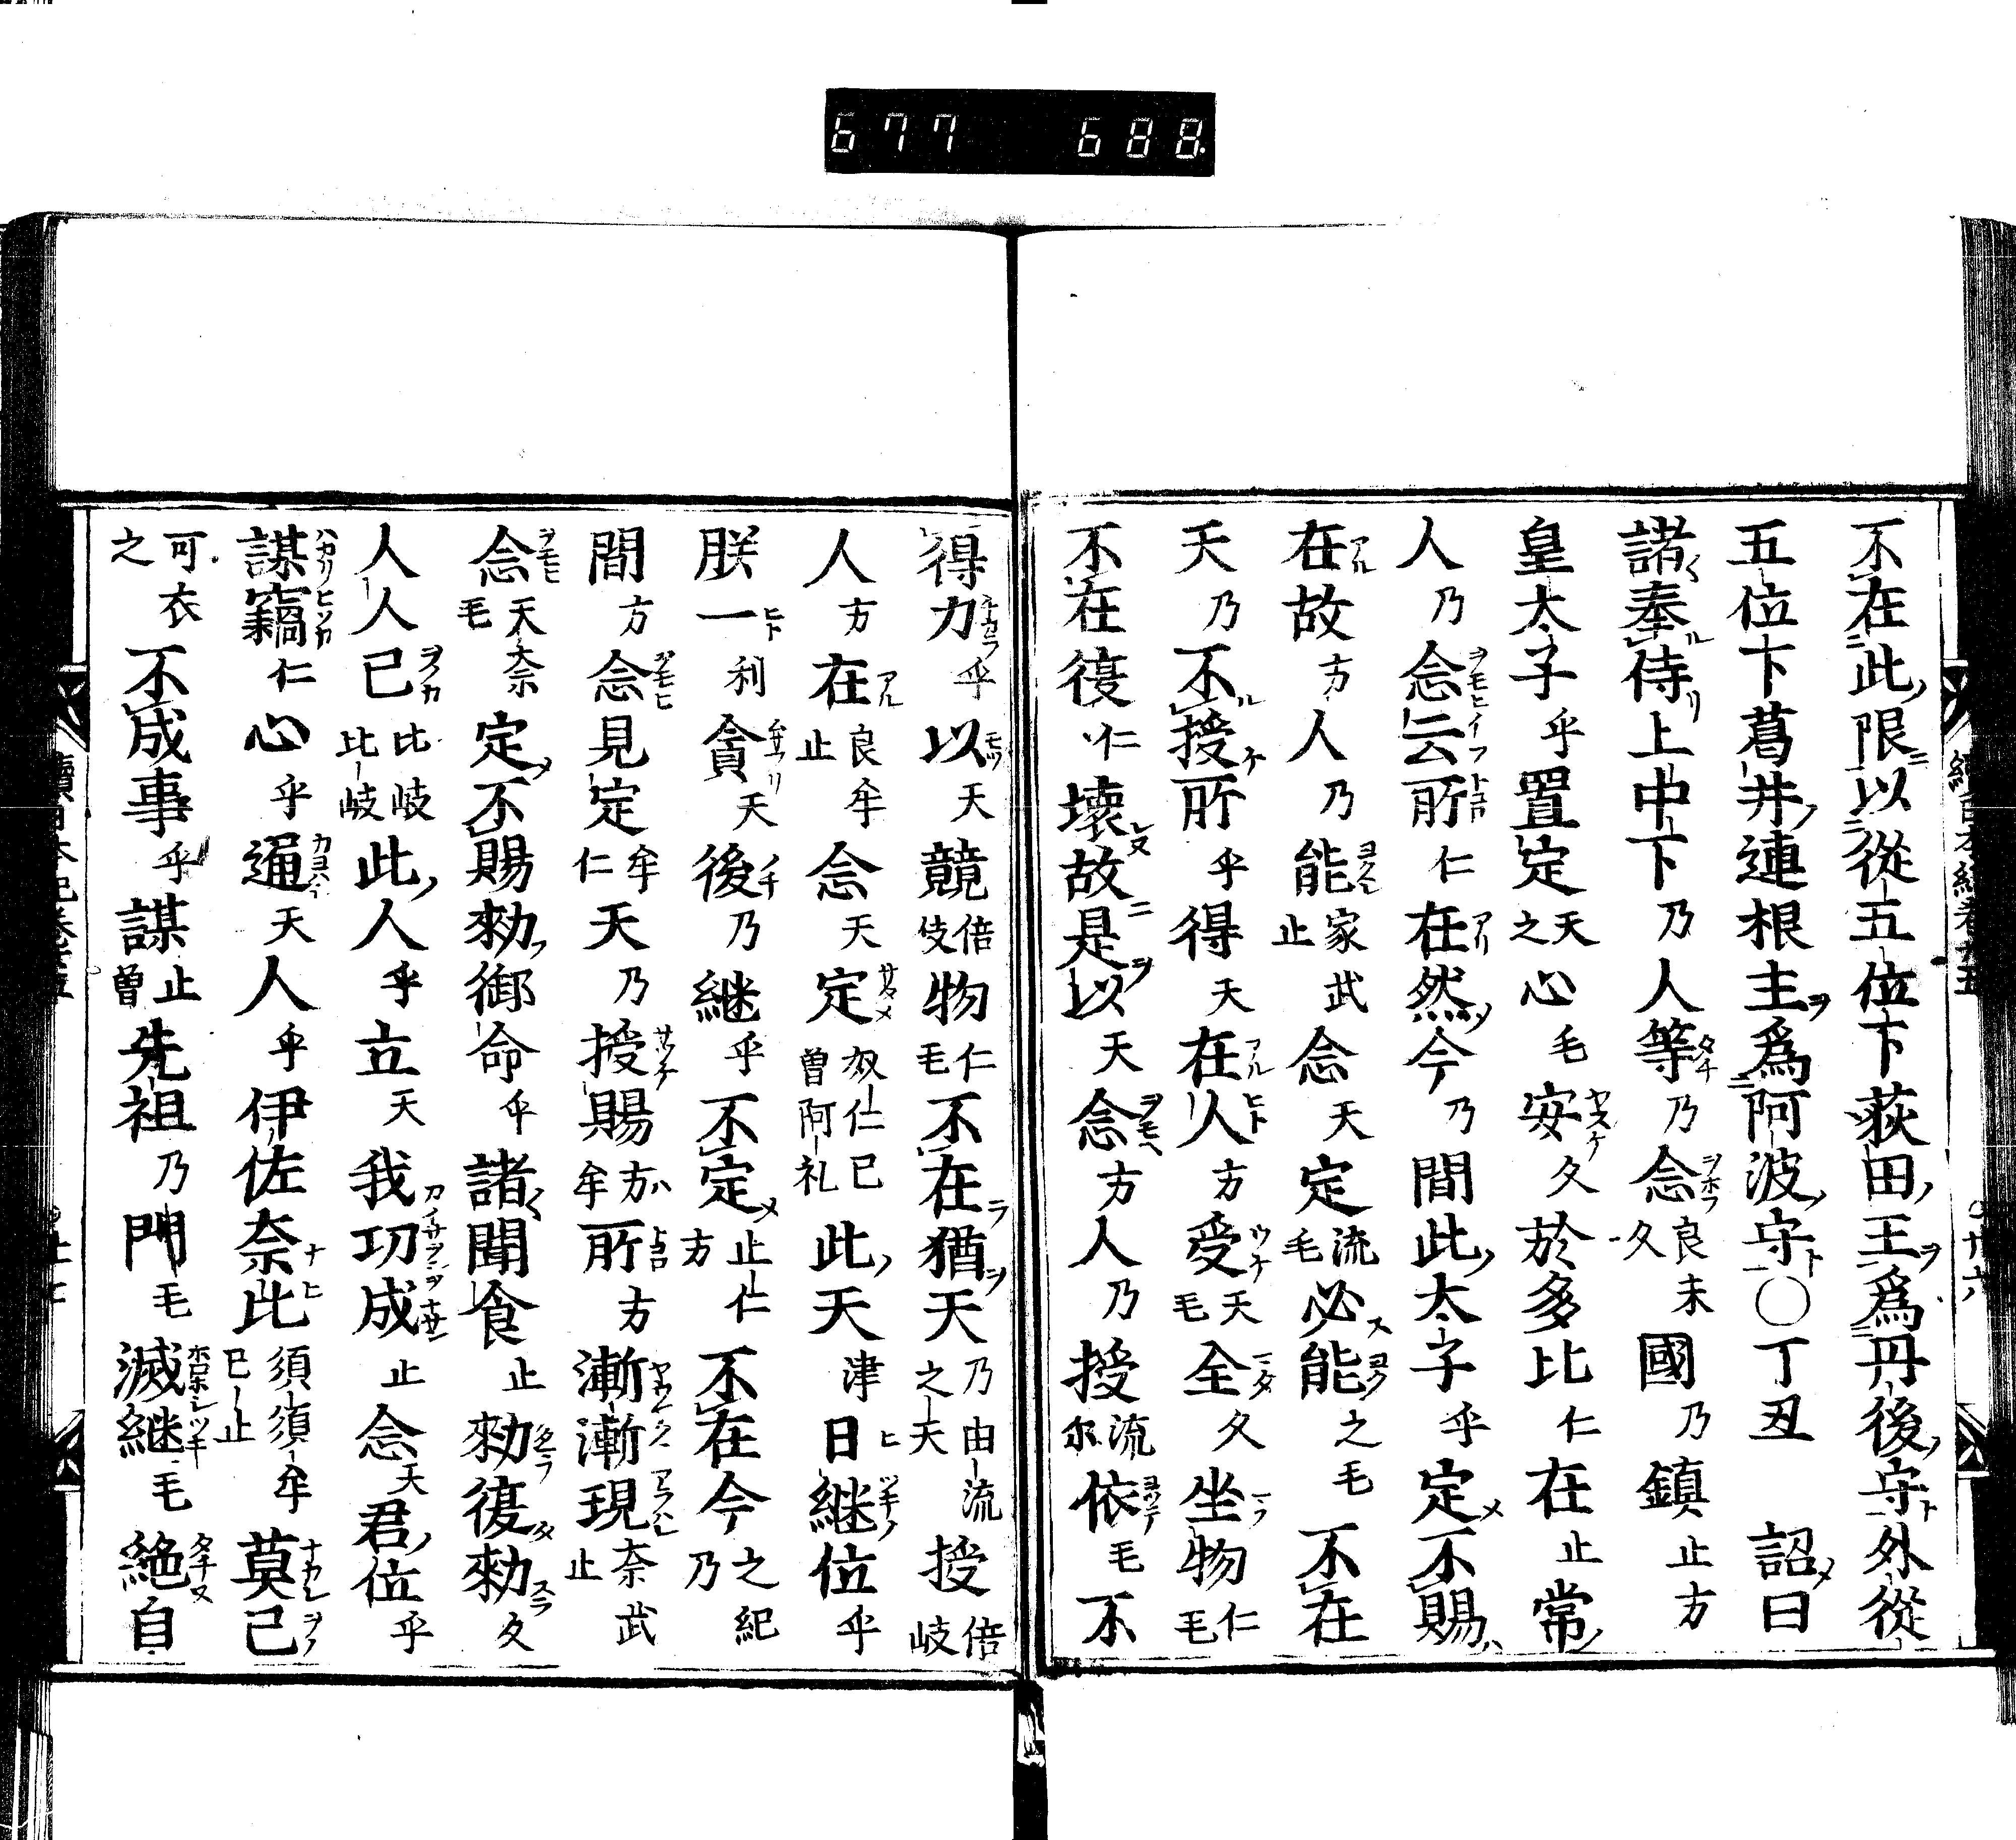 677 688
不在此限以從五位下荻田王為丹後守外從
五位下葛井連根主為阿波守○丁丑 詔曰
諸奉侍上中下乃人等乃念良末久國乃鎮止方
皇太子乎置定天之心毛安久於多比仁在止常
人乃念云所仁在然今乃間此太子乎定不賜
在故方人乃能家武止念天定流毛必能之毛不在
天乃不授所乎得天在人方受天毛全久坐物仁毛
不在後仁壊故是以天念方人乃授流尓依毛不
得力乎以天競倍伎物仁毛不在猶天乃由流之天授倍岐
人方在良牟止念天定奴仁己曽阿礼此天津日継位乎
朕一利貪天後乃継乎不定止仁方不在今之紀乃
間方念見定牟仁天乃授賜方牟所方漸漸現奈武止
念天奈毛定不賜勅御命乎諸聞食止勅復勅久
人人己比岐比岐此人乎立天我功成止念天君位乎
謀竊仁心乎通天人乎伊佐奈比須須牟己止莫己
可衣之不成事乎謀止曽先祖乃門毛滅継毛絶自